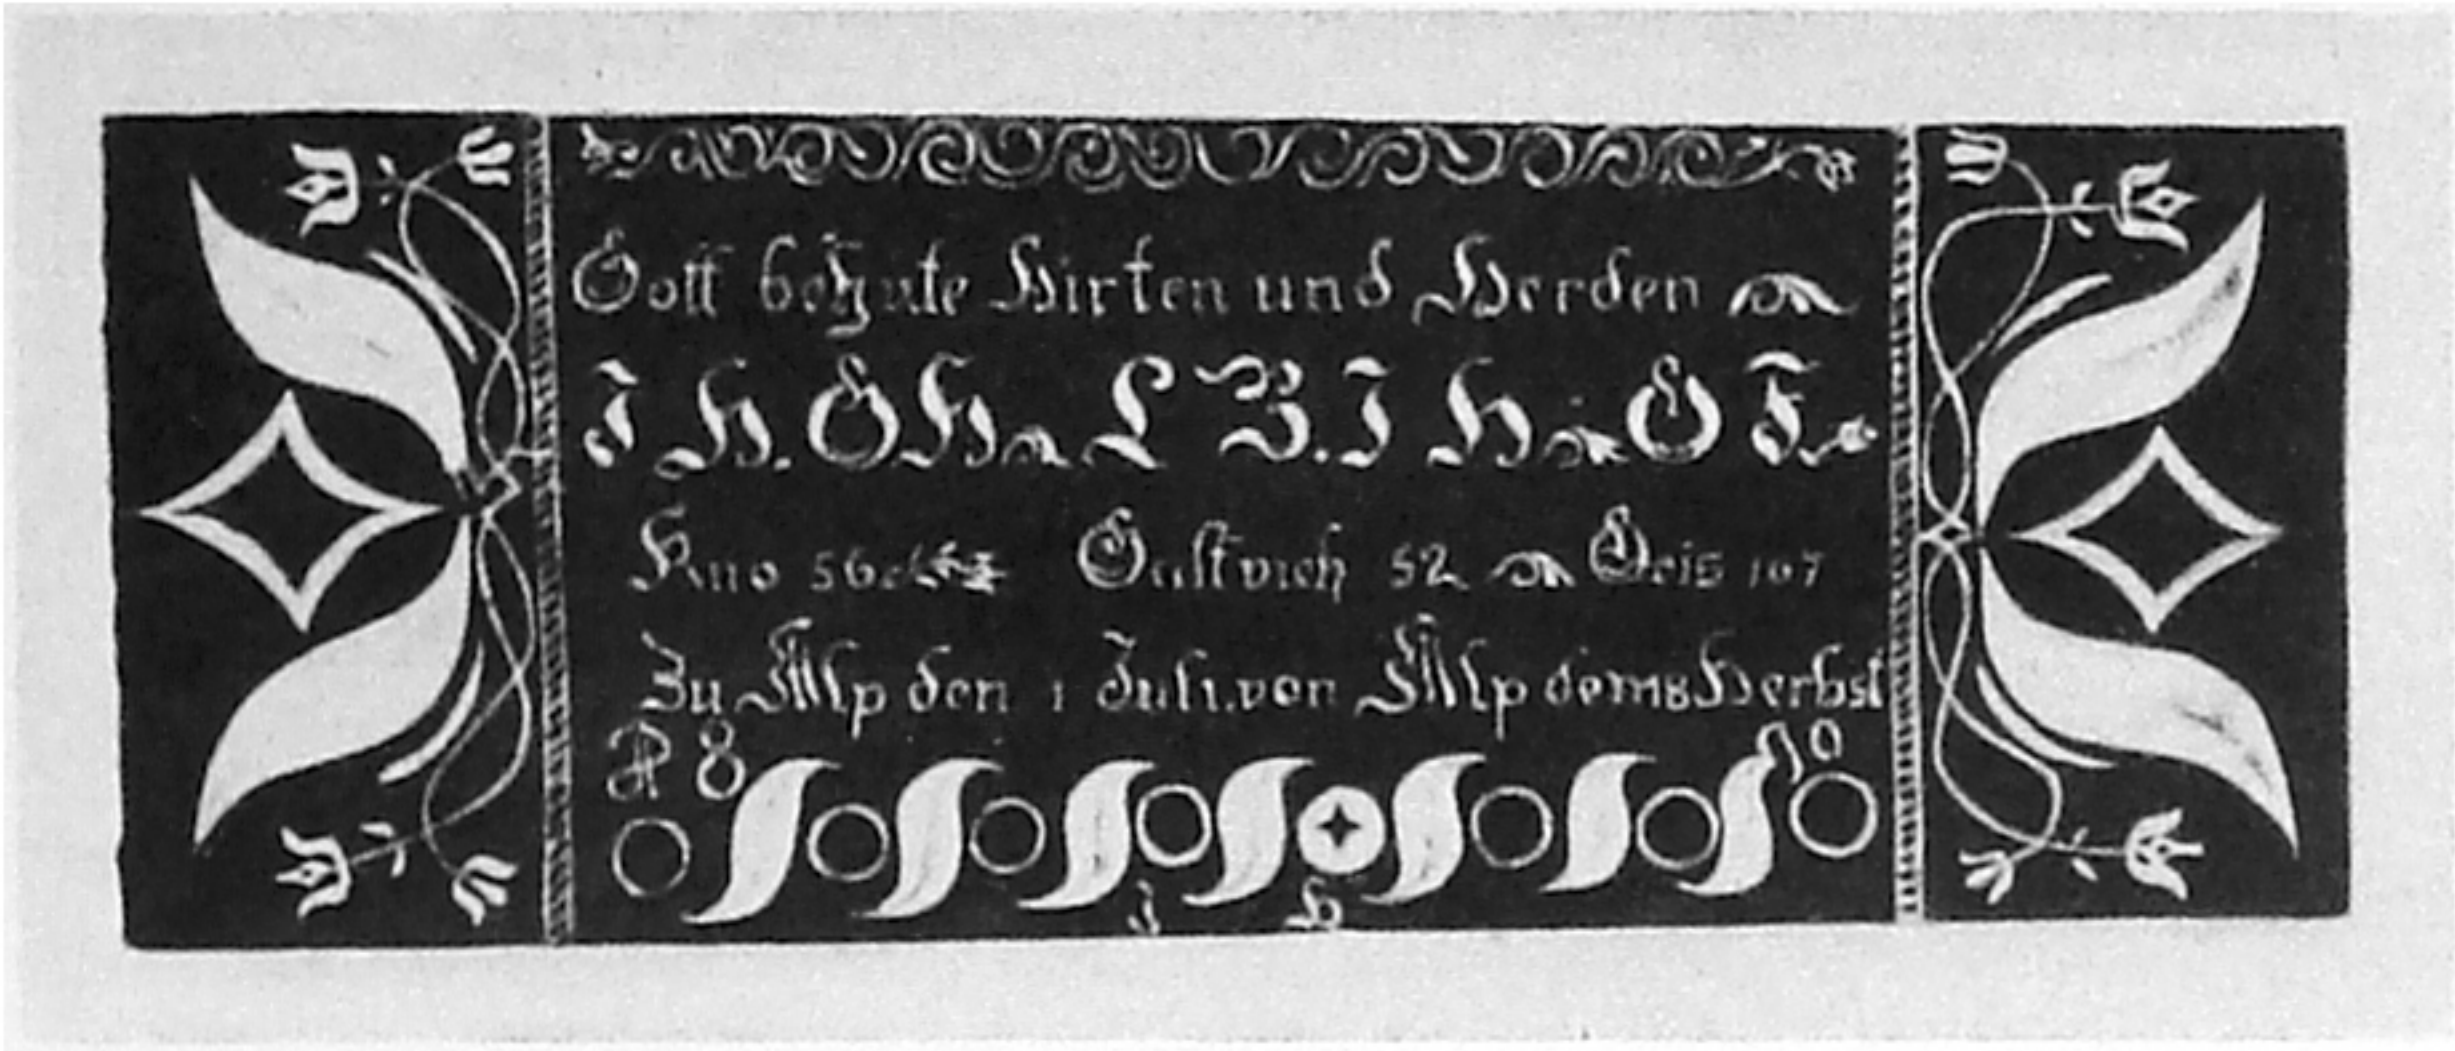 Gott behute Hirten und Herden
I H. G H L B. I H G F.
Kuo 56 Gustvieh 52 Geis 107
Zu Alp den 1 Juli. von Alp dem 8 Herbst
A 8 70
I h